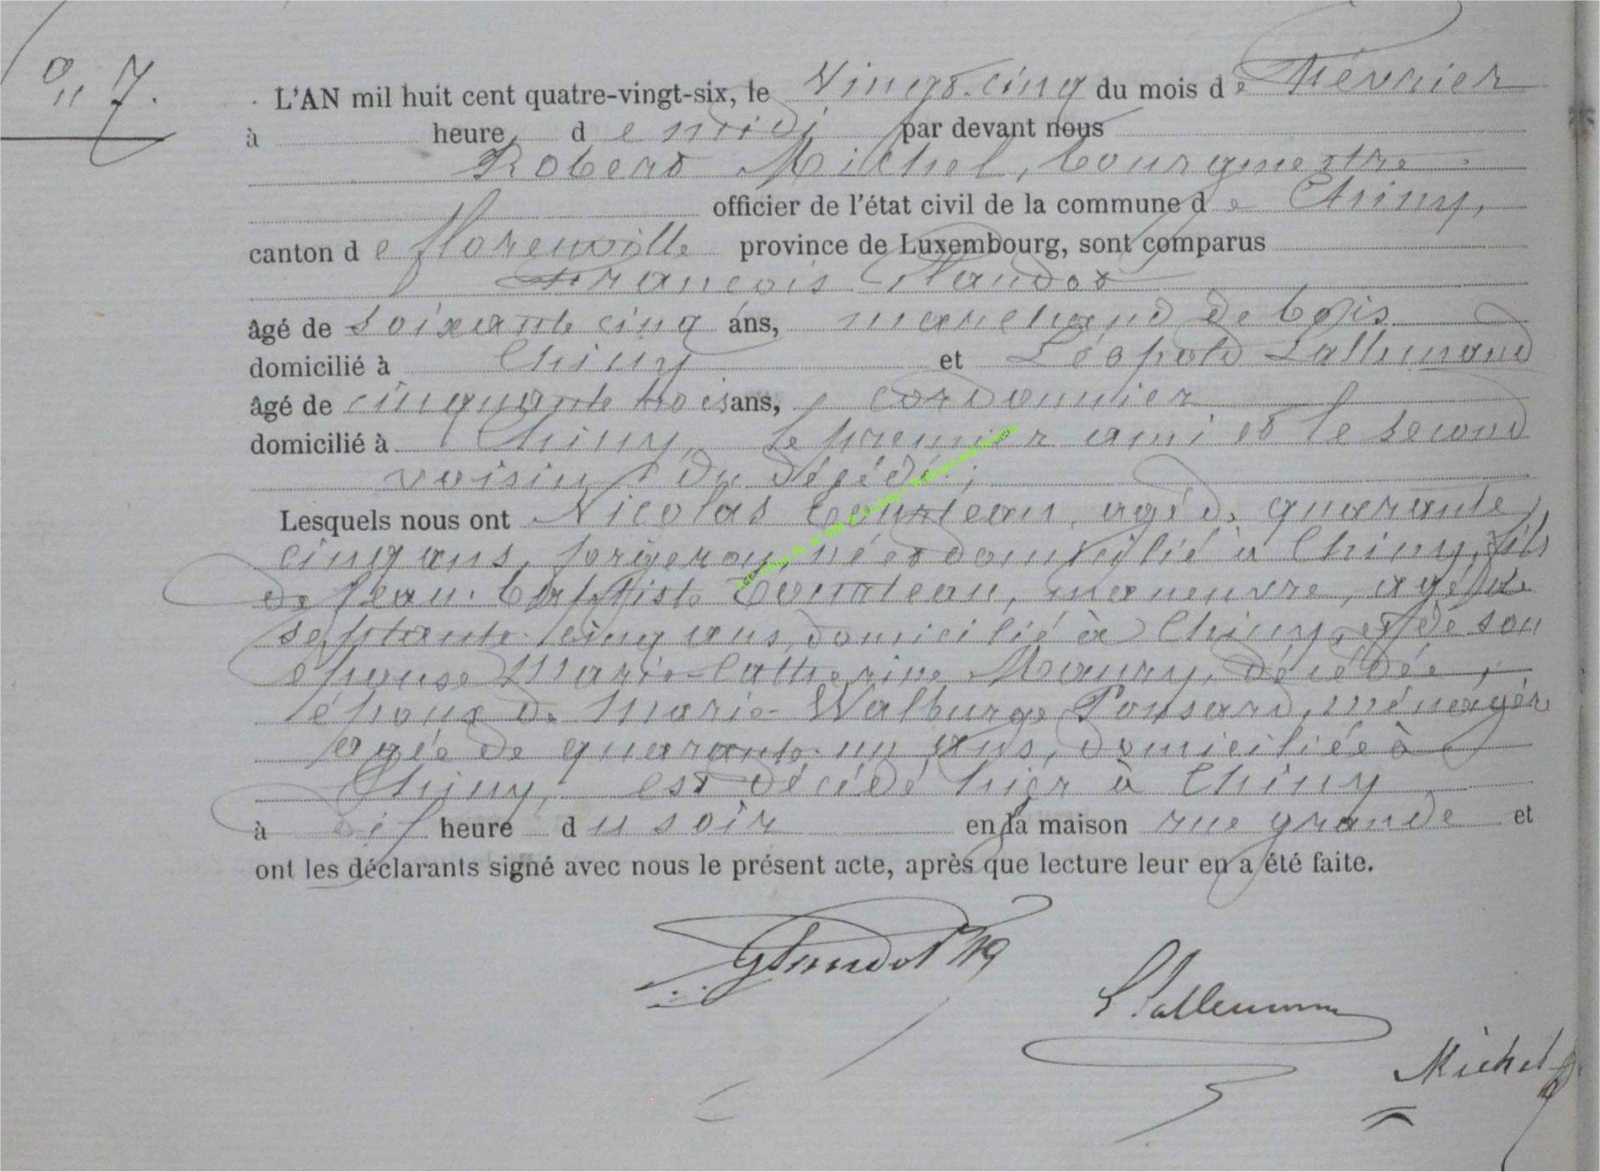 n° 7.
L'AN mil huit cent quatre-vingt-six, le Vingt-cinq du mois de Février
à heure de midi par devant nous
Robert Michel, bourgmestre
officier de l'état civil de la commune de Chiny,
canton de florenville province de Luxembourg, sont comparus
François Plandot
âgé de soixante cinq ans, marchand de bois
domicilié à Chiny et Léopold Lallemand
âgé de cinquante trois ans, cordonnier
domicilié à Chiny, le premier ami et le second
voisin du décédé;
Lesquels nous ont Nicolas agé de quarante
cinq ans, forgeron, né et domicilié à Chiny, fils
de Jean-Baptiste manœuvre, agé de
septante-cinq ans, domicilié à Chiny, et de son
épouse Marie-Catherine Maury, décédée,
époux de Marie-Walburge Ponsard, ménagère
agée de quarante-un ans, domiciliée à
Chiny, est décédé hier à Chiny
à dix heure du soir en la maison rue grande et
ont les déclarants signé avec nous le présent acte, après que lecture leur en a été faite.
L Lallemand
Michel